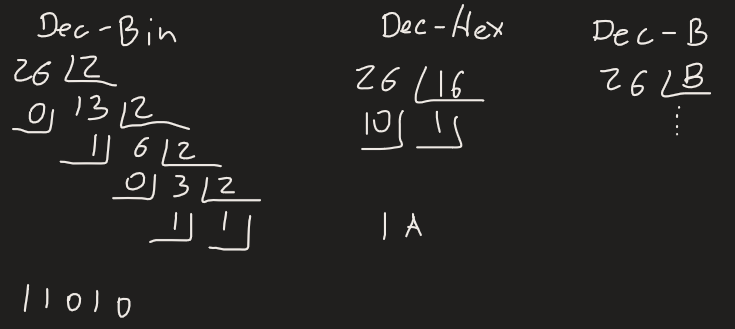 Dec-Bin
26 2
0 13 2
1 6 2
0 3 2
1 1
11010
Dec-Hex
26 16
10 1
1A
Dec-B
26 B
⋮